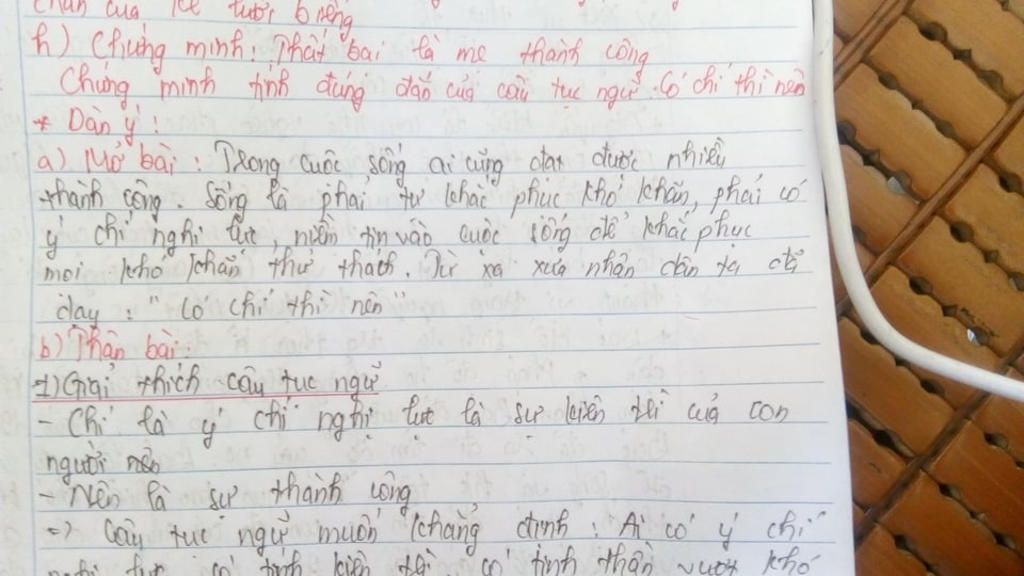 chân của kẻ lười biếng
h) Chứng minh: Thất bại là mẹ thành công
Chứng minh tính đúng đắn của câu tục ngữ. Có chí thì nên
* Dàn ý:
a) Mở bài: Trong cuộc sống ai cũng đạt được nhiều
thành công. Sống là phải tự khắc phục khó khăn, phải có
ý chí nghị lực, niềm tin vào cuộc sống để khắc phục
mọi khó khăn thử thách. Từ xa xưa nhân dân ta đã
dạy: "Có chí thì nên"
b) Thân bài:
1) Giải thích câu tục ngữ
- Chí là ý chí nghị lực là sự kiên trì của con
người nên
- Nên là sự thành công
=> Câu tục ngữ muốn khẳng định: Ai có ý chí
nghị lực, có tính kiên trì, có tinh thần vượt khó